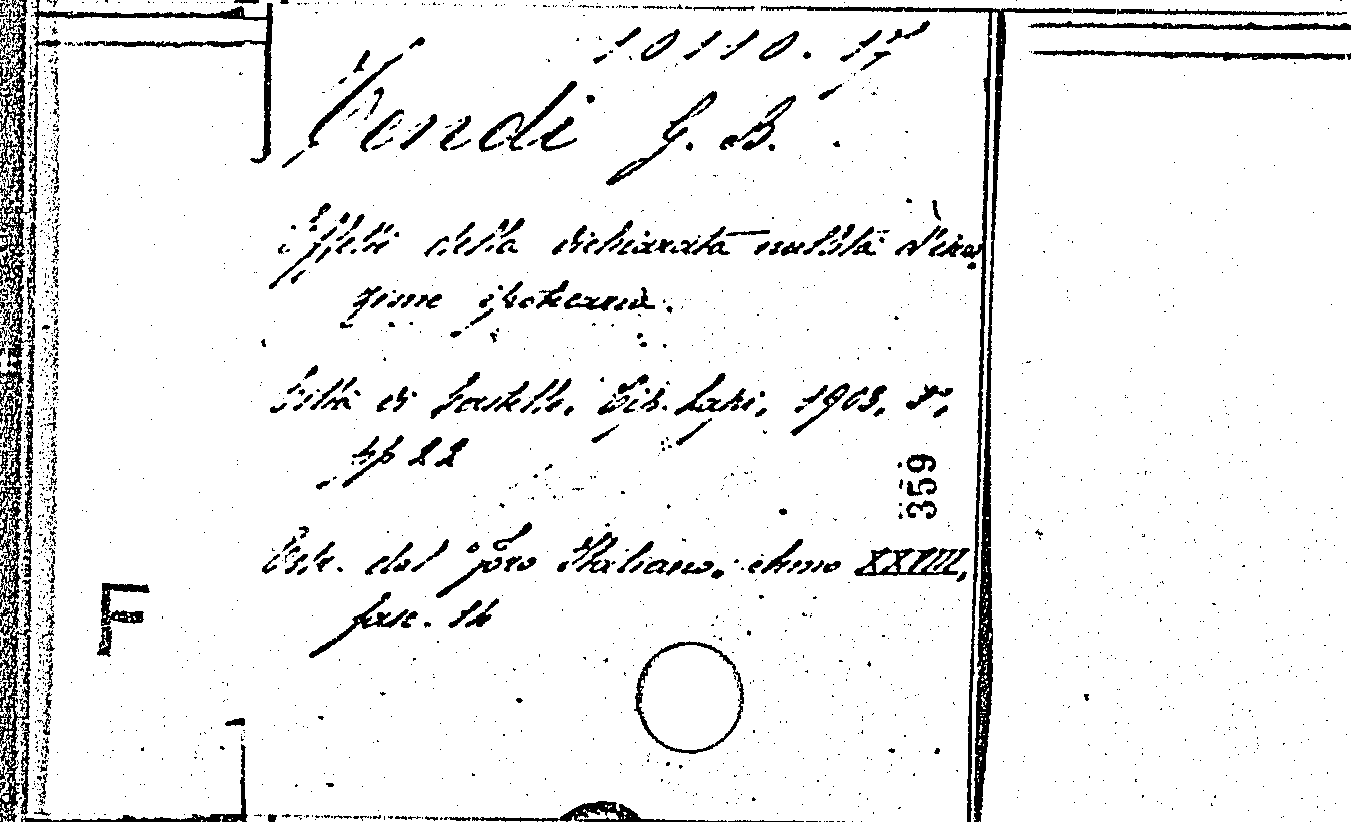 10110. 17
Vendi G. B.
Effetti della dichiarata nullità d'iscri-
zione ipotecaria.
Città di Castello, Tip. Lapi, 1903, 8°,
pp 22
359
Estr. dal Foro Italiano, Anno XXVIII,
fasc. 14
F